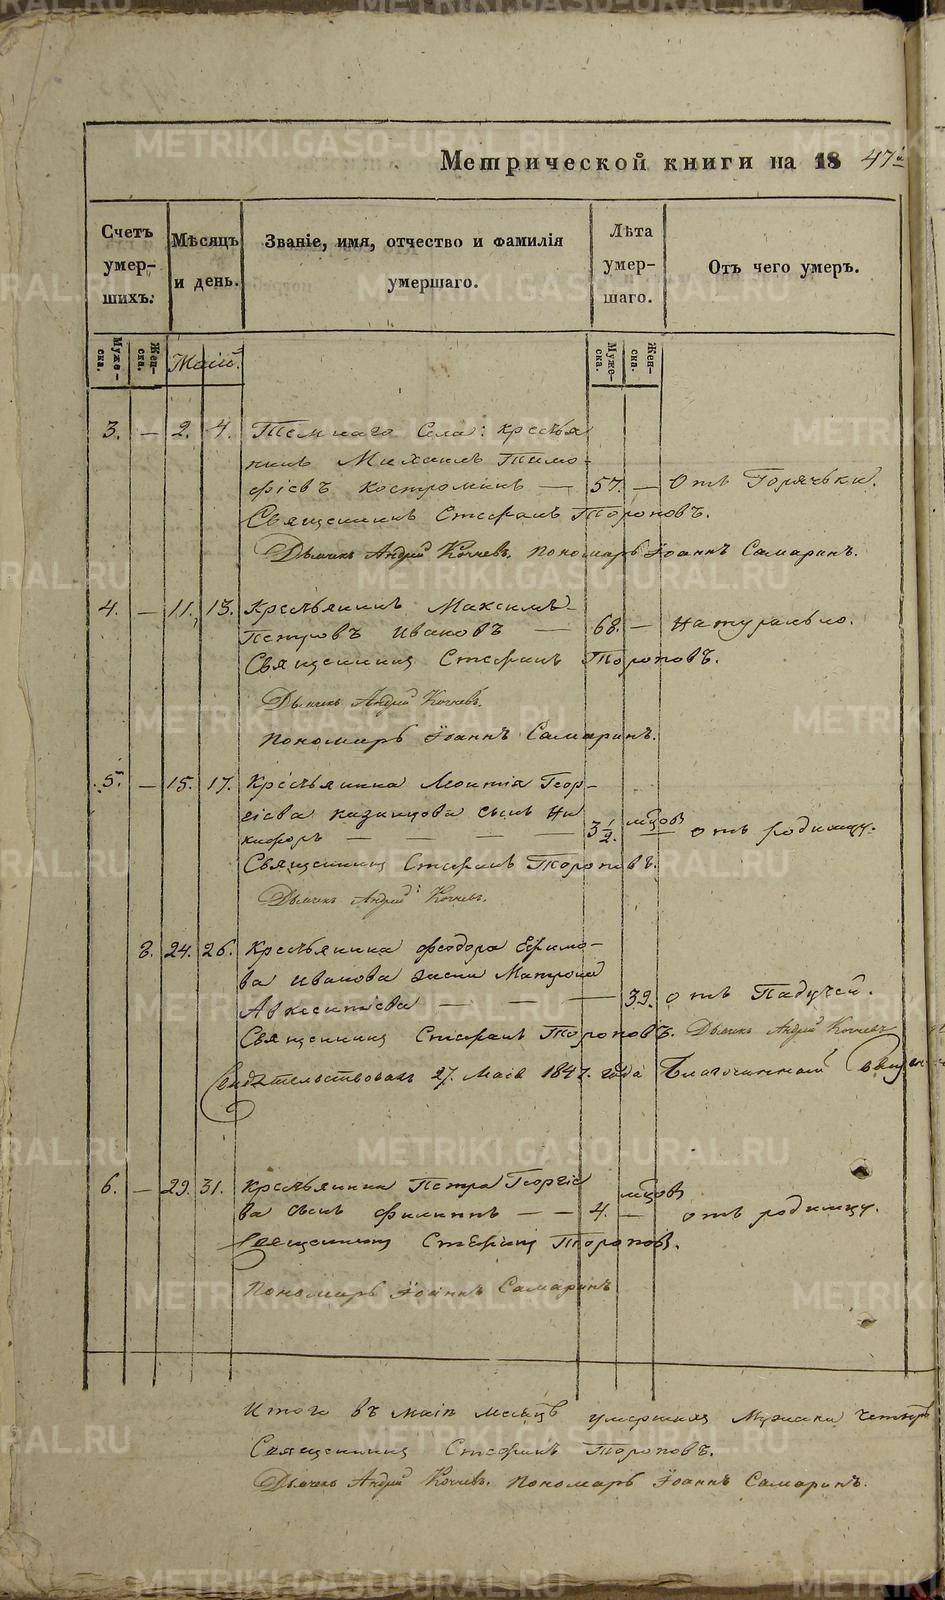 Метрической книги на 18 47й
Счетъ умершихъ.
Мѣсяцъ и день.
Званіе, имя, отчество и фамилія умершаго.
Лѣта умершаго.
Отъ чего умеръ.
Муже-ска. Жен-ска. Маій Муже-ска. Жен-ска.
3. — 2. 4. Села: крестья
нинъ Михаилъ Тимо-
фіевъ Костроминъ — 57. — Отъ Горячьки.
Священникъ Стефанъ Тороповъ.
Дьячекъ Андрей Кочневъ. Пономарь Іоаннъ Самаринъ.
4. — 11. 13. Крестьянинъ Максимъ
Петровъ Ивановъ — 68. — Натурально.
Священникъ Стефанъ Тороповъ.
Дьячекъ Андрей Кочневъ.
Пономарь Іоаннъ Самаринъ.
5. — 15. 17. Крестьянина Леонтія Геор-
гіева Казанцова сынъ Ни
кифоръ — — — 3 1/2. мцов — отъ родимцу.
Священникъ Стефанъ Тороповъ.
Дьячекъ Андрей Кочневъ.
2. 24. 26. Крестьянина Феодора Ефимо-
ва Иванова жена Матрона
Авксентіева — — — 39. отъ Падучей.
Священникъ Стефанъ Тороповъ. Дьячекъ Андрей Кочневъ
Свидѣтельствовалъ 27. Маія 1847. года Благочинный
6. — 29. 31. Крестьянина Петра Георгіе
ва сынъ Филиппъ — — 4. мцов — отъ родимцу.
Священникъ Стефанъ Тороповъ.
Пономарь Іоаннъ Самаринъ
Итого въ маіѣ месяцѣ умершихъ Мужска четыре
Священникъ Стефанъ Тороповъ.
Дьячекъ Андрей Кочневъ. Пономарь Іоаннъ Самаринъ.
METRIKI.GASO-URAL.RU